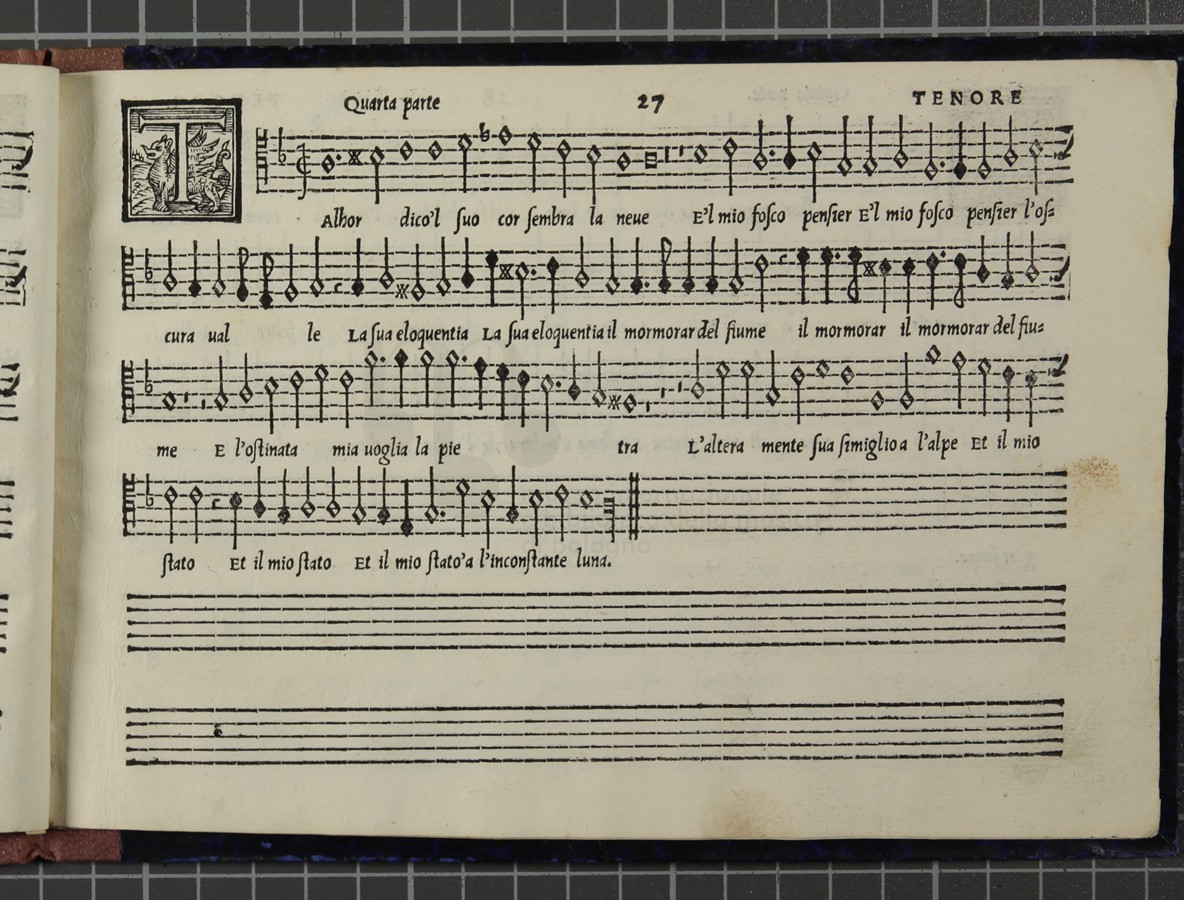 Quarta parte 27 TENORE
T Alhor dico'l ſuo cor ſembra la neue E'l mio foſco penſier E'l mio foſco penſier l'oſ=
cura ual le La ſua eloquentia La ſua eloquentia il mormorar del fiume il mormorar il mormorar del fiu=
me E l'oſtinata mia uoglia la pie tra L'altera mente ſua ſimiglio a l'alpe Et il mio
ſtato Et il mio ſtato Et il mio ſtato'a l'inconſtante luna.